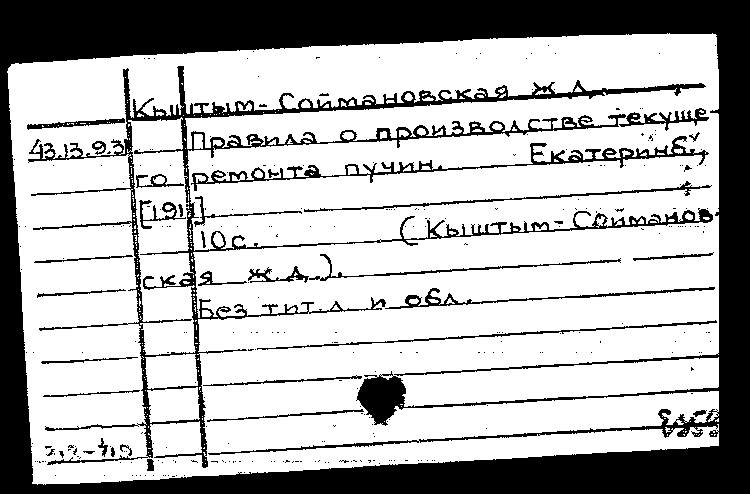 Кыштым-Соймановская ж.д.
43.13.9.31. Правила о производстве текуще-
го ремонта пучин. Екатеринб.,
[1911].
10 с. (Кыштым-Сойманов-
ская ж.д.).
Без тит.л и обл.